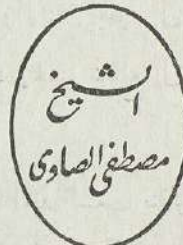 الشيخ
مصطفى الصاوى